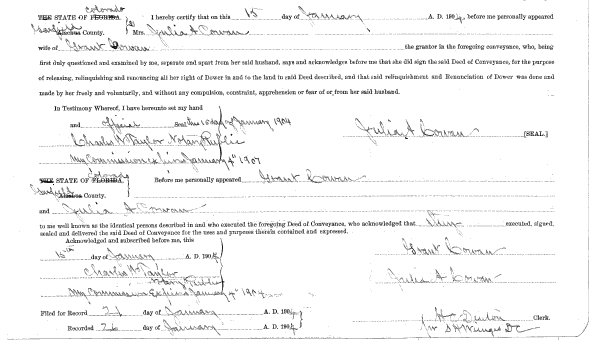 Colorado
THE STATE OF FLORIDA. I hereby certify that on this 15 day of January A. D. 1904, before me personally appeared
Garfield Alachua County. Mrs. Julia A Cowan
wife of Grant Cowan the grantor in the foregoing conveyance, who, being
first duly questioned and examined by me, separate and apart from her said husband, says and acknowledges before me that she did sign the said Deed of Conveyance, for the purpose
of releasing, relinquishing and renouncing all her right of Dower in and to the land in said Deed described, and that said relinquishment and Renunciation of Dower was done and
made by her freely and voluntarily, and without any compulsion, constraint, apprehension or fear of or from her said husband.
In Testimony Whereof, I have hereunto set my hand
and official this 15 day of January 1904
Charles W Taylor Notary Public Julia A Cowan [SEAL.]
My Commission expires January 4th 1907
Colorado
THE STATE OF FLORIDA. Before me personally appeared Grant Cowan
Garfield Alachua County.
and Julia A Cowan
to me well known as the identical persons described in and who executed the foregoing Deed of Conveyance, who acknowledged that they executed, signed,
sealed and delivered the said Deed of Conveyance for the uses and purposes therein contained and expressed.
Acknowledged and subscribed before me, this Grant Cowan
15th day of January A. D. 1904
Charles W Taylor Julia A Cowan
Notary Public
My Commission Expires January 4th
Filed for Record 21 day of January A. D. 1904 H C Denton Clerk.
Recorded 26 day of January